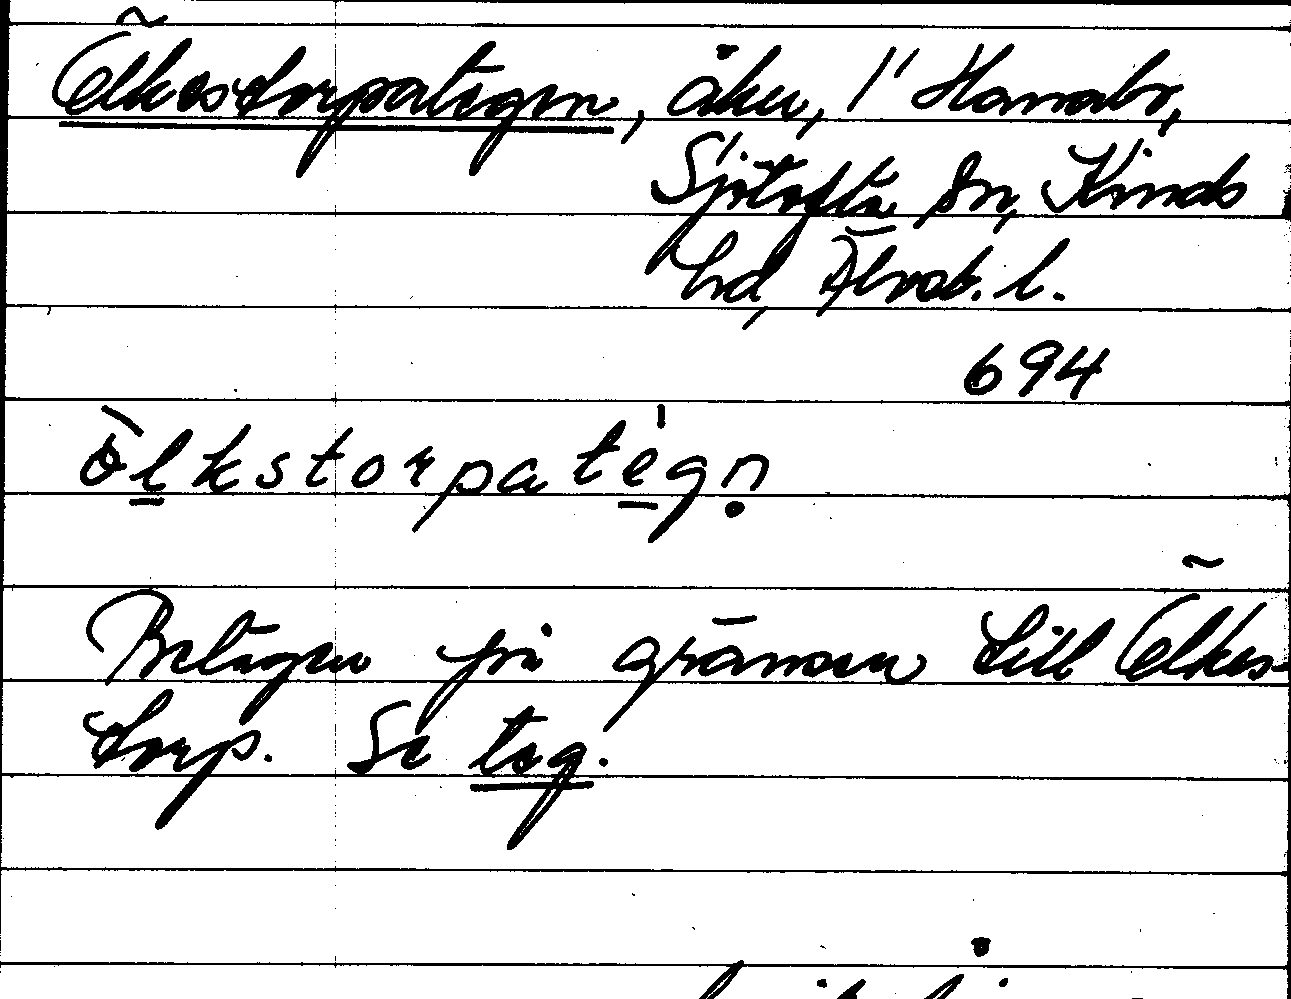 Ölkestorpategen, åker, 1' Hanabo,
Sjötofta sn, Kinds
hd, Älvsb. l.
694
ö̀lkstorpatégn̥
Belägen på gränsen till Ölkes-
torp. Se teg.